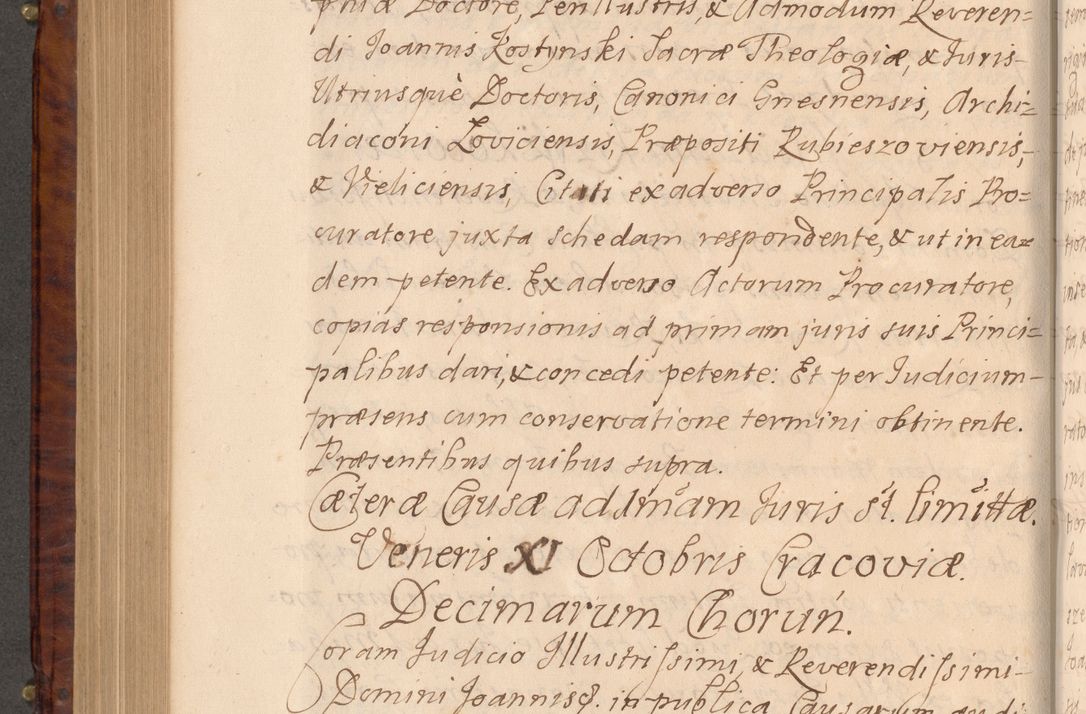 phiæ Doctore, Perillustris, & Admodum Reveren=
di Joannis Kostynski Sacræ Theologiæ, & Juris-
Utriusquè Doctoris, Canonici Gnesnensis, Archi=
diaconi Loviciensis, Præpositi Rubieszoviensis,-
& Vieliciensis, Citati ex adverso Principalis Pro=
curatore juxta schedam respondente, & ut in ea=
dem petente. Ex adverso Actorum Procuratore,
copias responsionis ad primam juris suis Princi=
palibus dari, & concedi petente: Et per Judicium-
præsens cum conservatione termini obtinente.
Præsentibus quibus supra.
Cæteræ Causæ ad 1mam Juris st. limittæ.
Veneris XI Octobris Cracoviæ.
Decimarum Chorum.
Coram Judicio Illustrissimi, & Reverendissimi-
Domini Joannis in publica Causarum audi